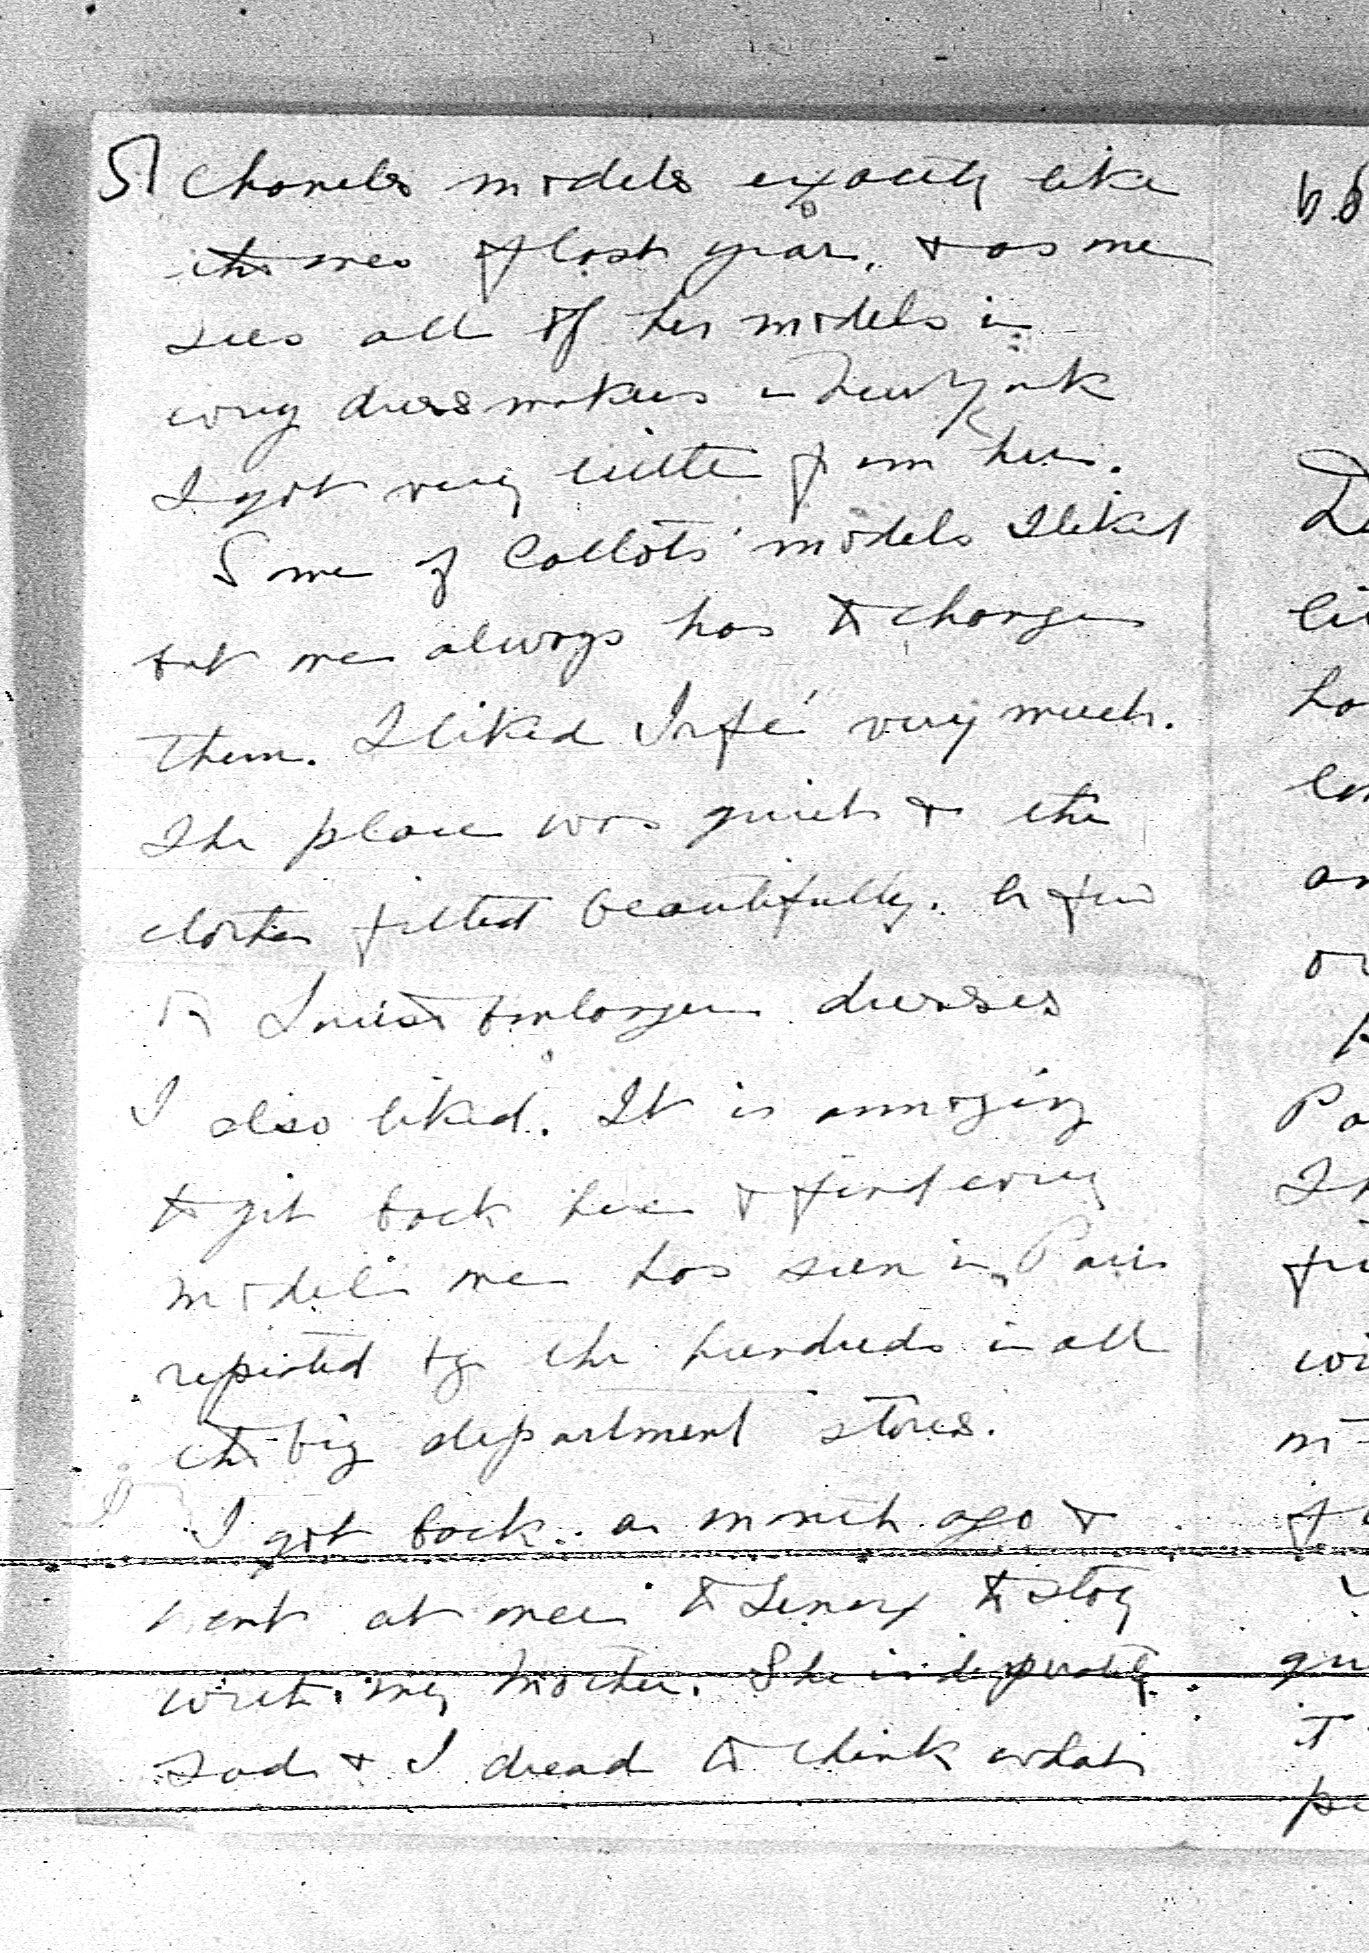 5] Chanels models exactly like
the ones of last year, & as one
sees all of her models in
every dressmakers in New York
I got very little from her.
Some of Callots' models I liked
but one always has to change
them. I liked Irfé very much.
The place was quiet & the
clothes fitted beautifully. A few
of Louise Boulanger dresses
I also liked. It is annoying
to get back here & find every
model one has seen in Paris
repeated by the hundreds in all
the big department stores.
I got back a month ago &
went at once to Lenox to stay
with my mother. She is desperately
sad & I dread to think what